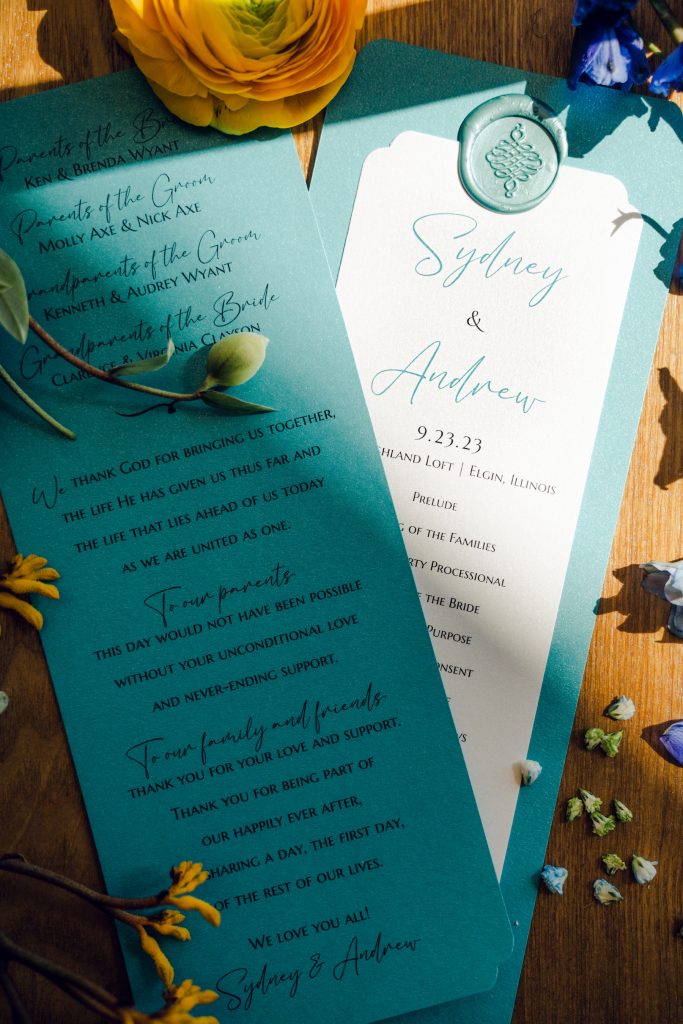 Parents of the
Ken & Brenda Wyant
Parents of the Groom
Molly Axe & Nick Axe
Grandparents of the Groom
Kenneth & Audrey Wyant
Grandparents of the Bride
Clarence & Virginia Clayson
We thank God for bringing us together,
the life He has given us thus far and
the life that lies ahead of us today
as we are united as one.
To our parents
this day would not have been possible
without your unconditional love
and never-ending support.
To our family and friends
thank you for your love and support.
Thank you for being part of
our happily ever after,
sharing a day, the first day,
of the rest of our lives.
We love you all!
Sydney & Andrew
Sydney
&
Andrew
9.23.23
Loft | Elgin, Illinois
Prelude
of the Families
Processional
the Bride
Purpose